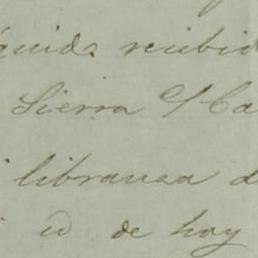 quida recibid
Sierra S/ Ca
libranza d
id de hoy